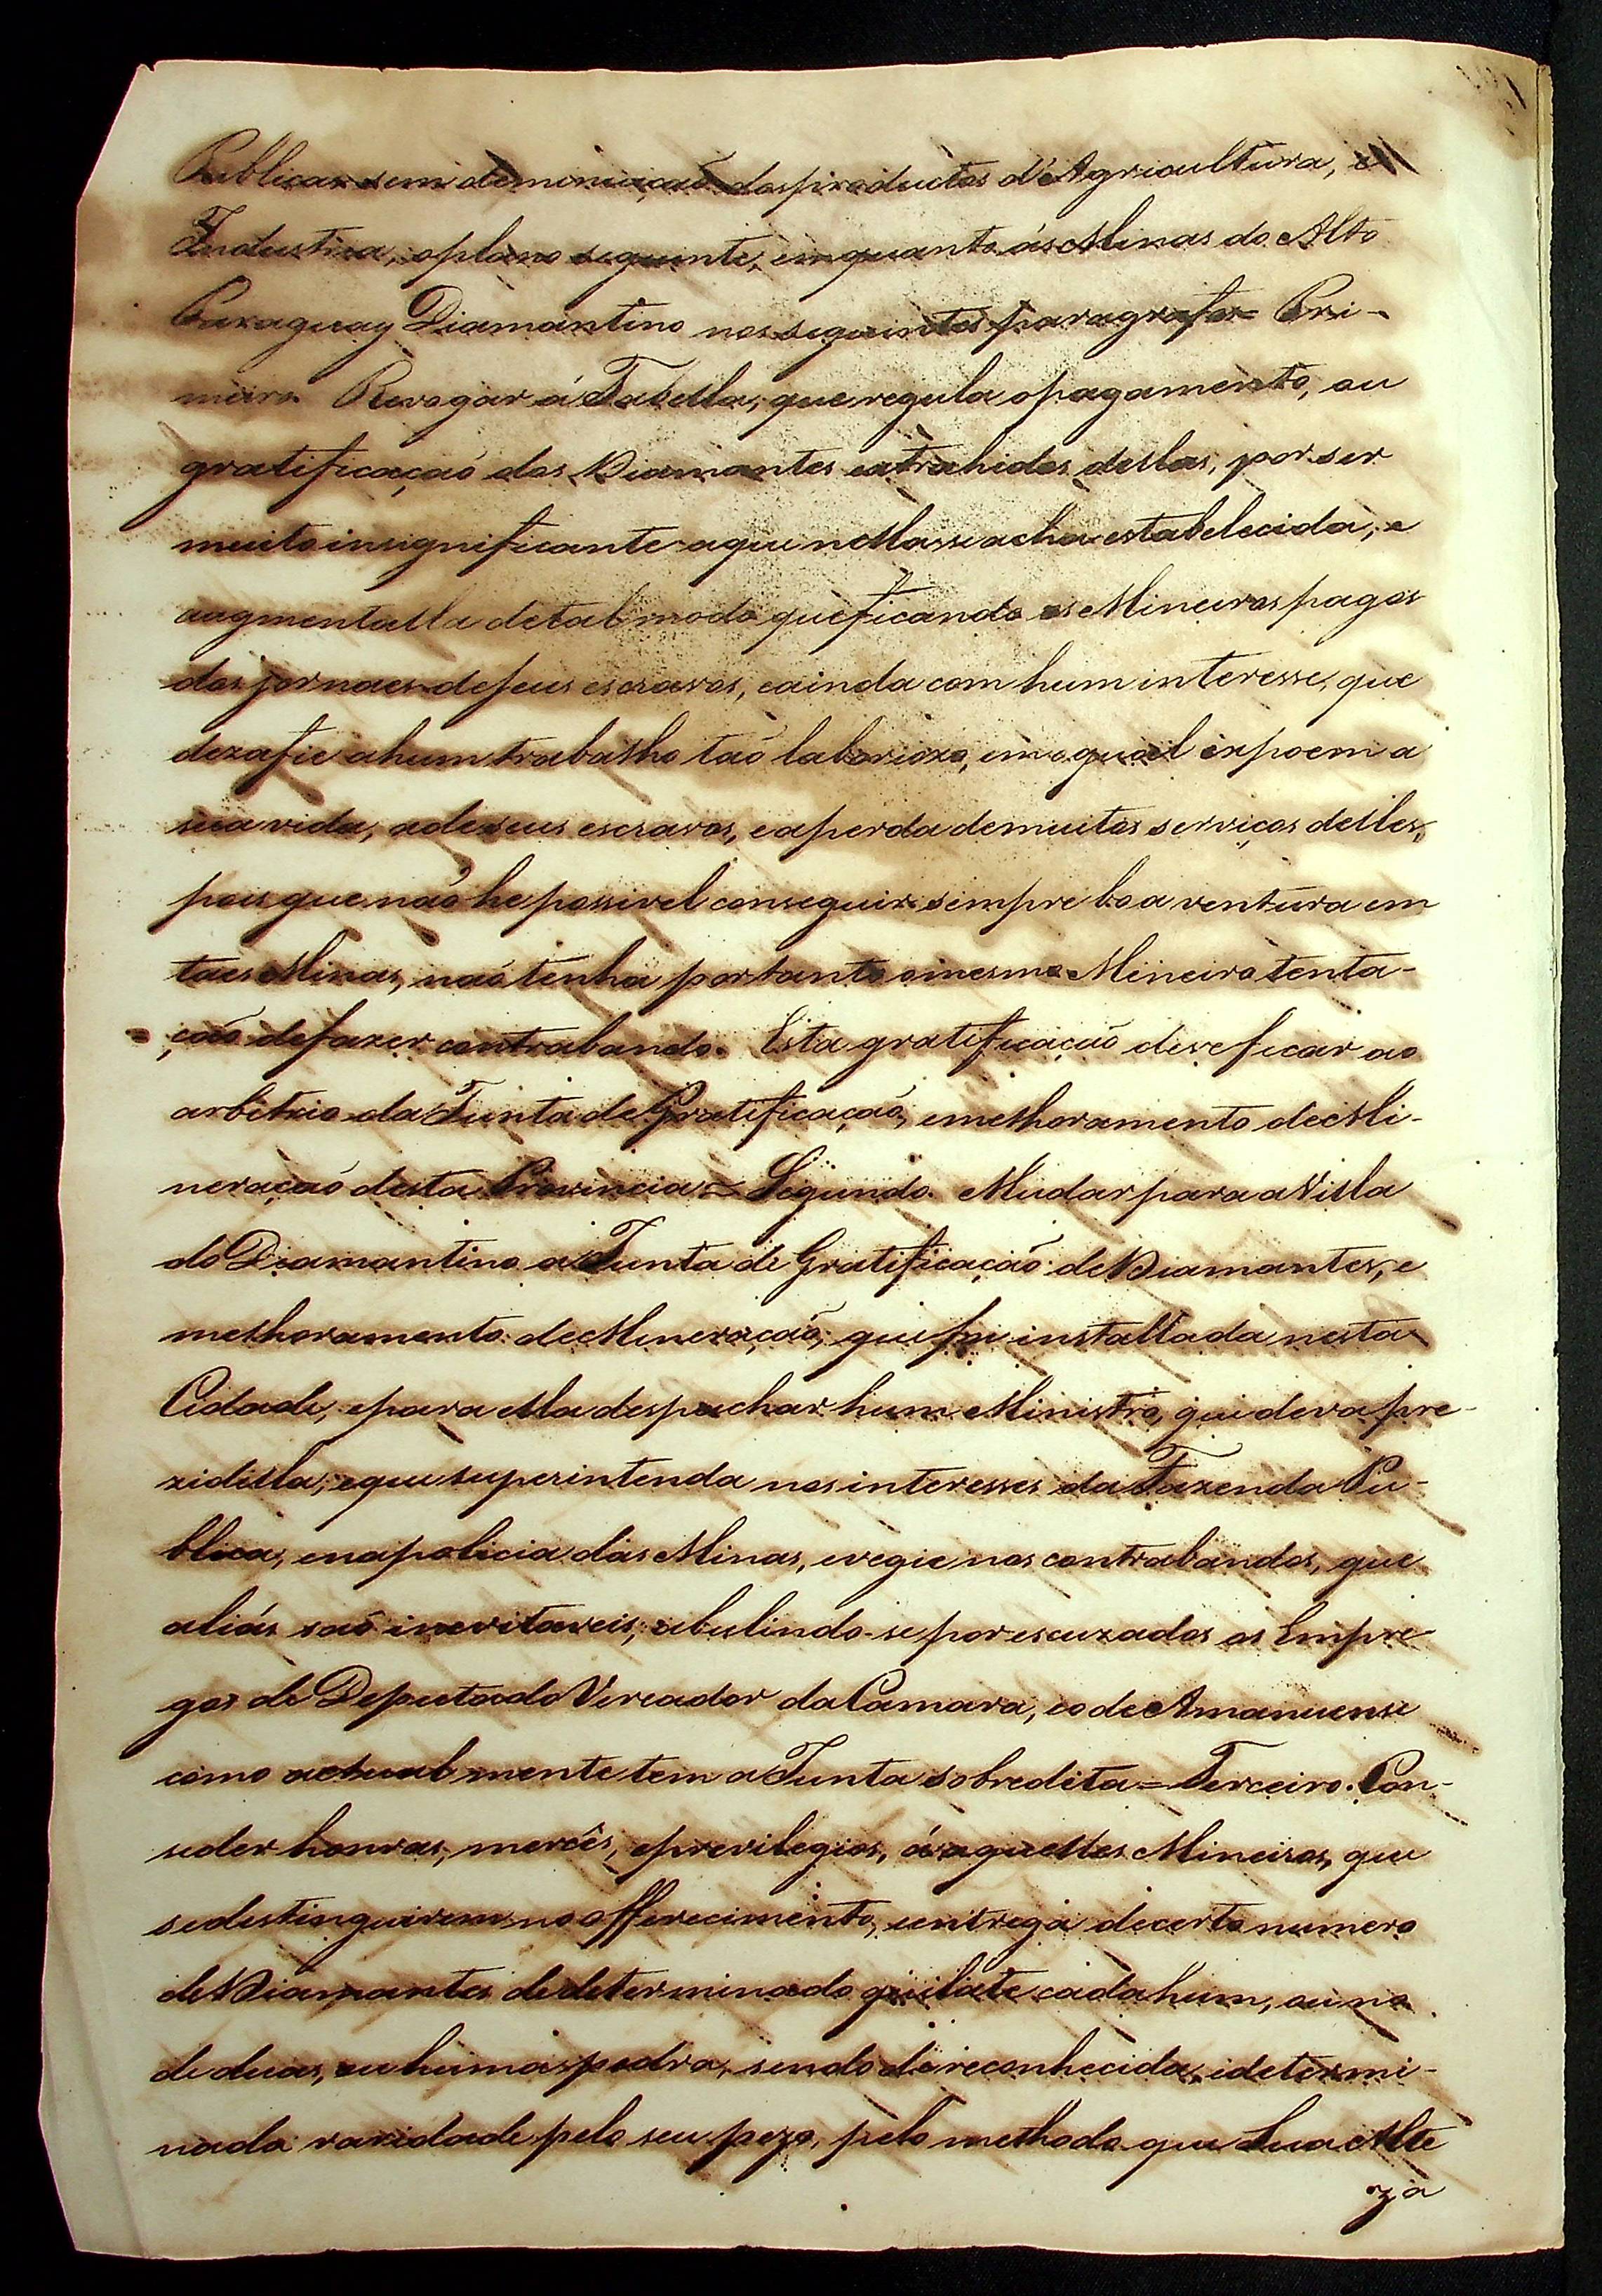 Publicas sem deminuiçaõ dos productos d'Agricultura, e
Industria, o plano seguinte, em quanto ás Minas do Alto
Paraguay Diamantino nos seguintes paragrafos = Pri-
meiro. Revogar á Tabella, que regula o pagamento, ou
gratificaçaõ dos Diamantes extrahidos dellas, por ser
muito insignificante a que nella se acha estabelecida, e
augmentalla de tal modo que ficando os Mineiros pagos
dos jornaes de seus escravos, e ainda com hum interesse, que
dezafie a hum trabalho taõ laboriozo, em o qual expoem a
sua vida, a de seus escravos, e a perda de muitos serviços delles,
pois que naõ he possivel conseguir sempre boa ventura em
taes Minas, naõ tenha por tanto o mesmo Mineiro tenta-
çaõ de fazer contrabando. Esta gratificaçaõ deve ficar ao
arbitrio da Junta de Gratificaçaõ, e melhoramento de Mi-
neraçaõ desta Provincia = Segundo. Mudar para a Villa
do Diamantino a Junta de Gratificaçaõ de Diamantes, e
melhoramento de Mineraçaõ, que foi installada nesta
Cidade, e para ella despachar hum Ministro, que deva pre-
zidilla, e que superintenda nos interesses da Fazenda Pu-
blica, e na policia das Minas, e vegie nos contrabandos, que
aliás saõ inevitaveis, abulindo-se por escuzados os Empre-
gos de Deputado Vereador da Camara, e o de Amanuense
como actualmente tem a Junta sobredita = Terceiro. Con-
seder honras, mercês, e previlegios, ás aquelles Mineiros, que
se destinguirem no offerecimento, e entrega de certo numero
de Diamantes de determinado quilate cada hum, ou no
de duas, ou huma pedra, sendo de reconhecida, e determi-
nada raridade pelo seu pezo, pelo methodo que Sua Alte
za